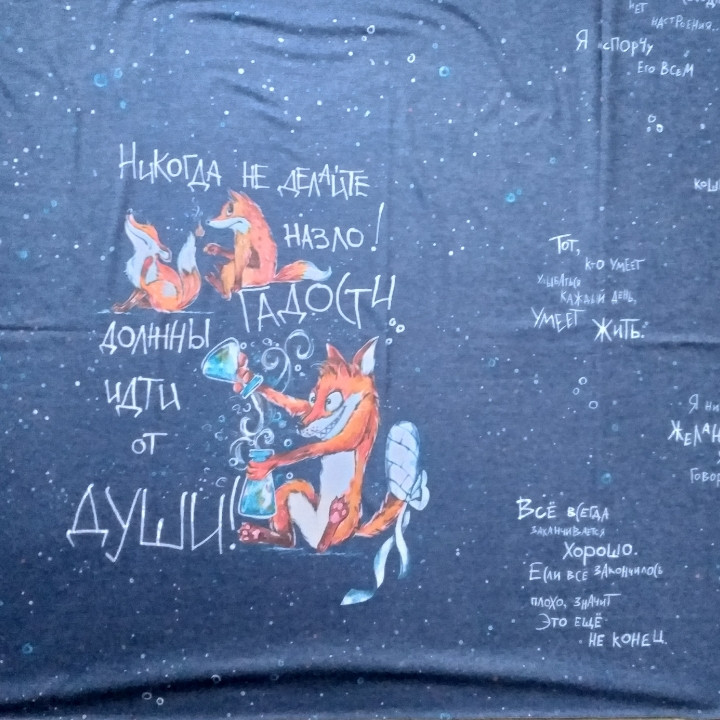 Никогда не делайте
назло!
Гадости
должны
идти
от
души!
нет
настроения...
Я испорчу
его всем
кош
Тот,
кто умеет
улыбаться
каждый день,
умеет жить.
Я ни
желан
говор
Всё всегда
заканчивается
хорошо.
Если всё закончилось
плохо, значит
это ещё
не конец.